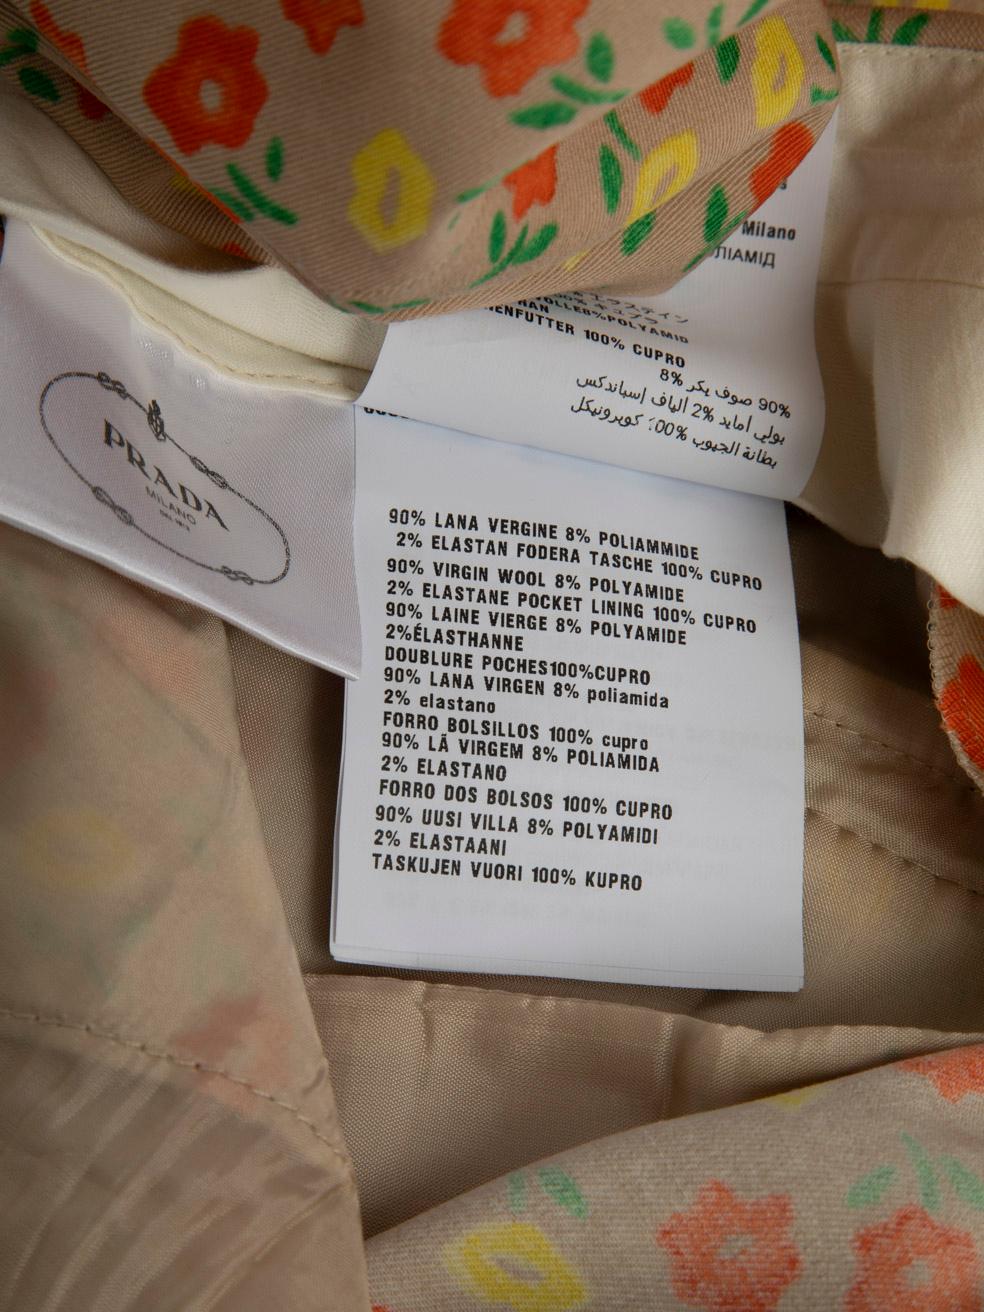 Milano
ЛІАМІД
エラスティン
キュプラ
VOLLE8%POLYAMID
ENFUTTER 100% CUPRO
90% صوف بكر 8%
بولي أمايد 2% ألياف إسباندكس
بطانة الجيوب 100% كوبرونيكل
PRADA
MILANO
DAL 1913
90% LANA VERGINE 8% POLIAMMIDE
2% ELASTAN FODERA TASCHE 100% CUPRO
90% VIRGIN WOOL 8% POLYAMIDE
2% ELASTANE POCKET LINING 100% CUPRO
90% LAINE VIERGE 8% POLYAMIDE
2%ÉLASTHANNE
DOUBLURE POCHES100%CUPRO
90% LANA VIRGEN 8% poliamida
2% elastano
FORRO BOLSILLOS 100% cupro
90% LÃ VIRGEM 8% POLIAMIDA
2% ELASTANO
FORRO DOS BOLSOS 100% CUPRO
90% UUSI VILLA 8% POLYAMIDI
2% ELASTAANI
TASKUJEN VUORI 100% KUPRO